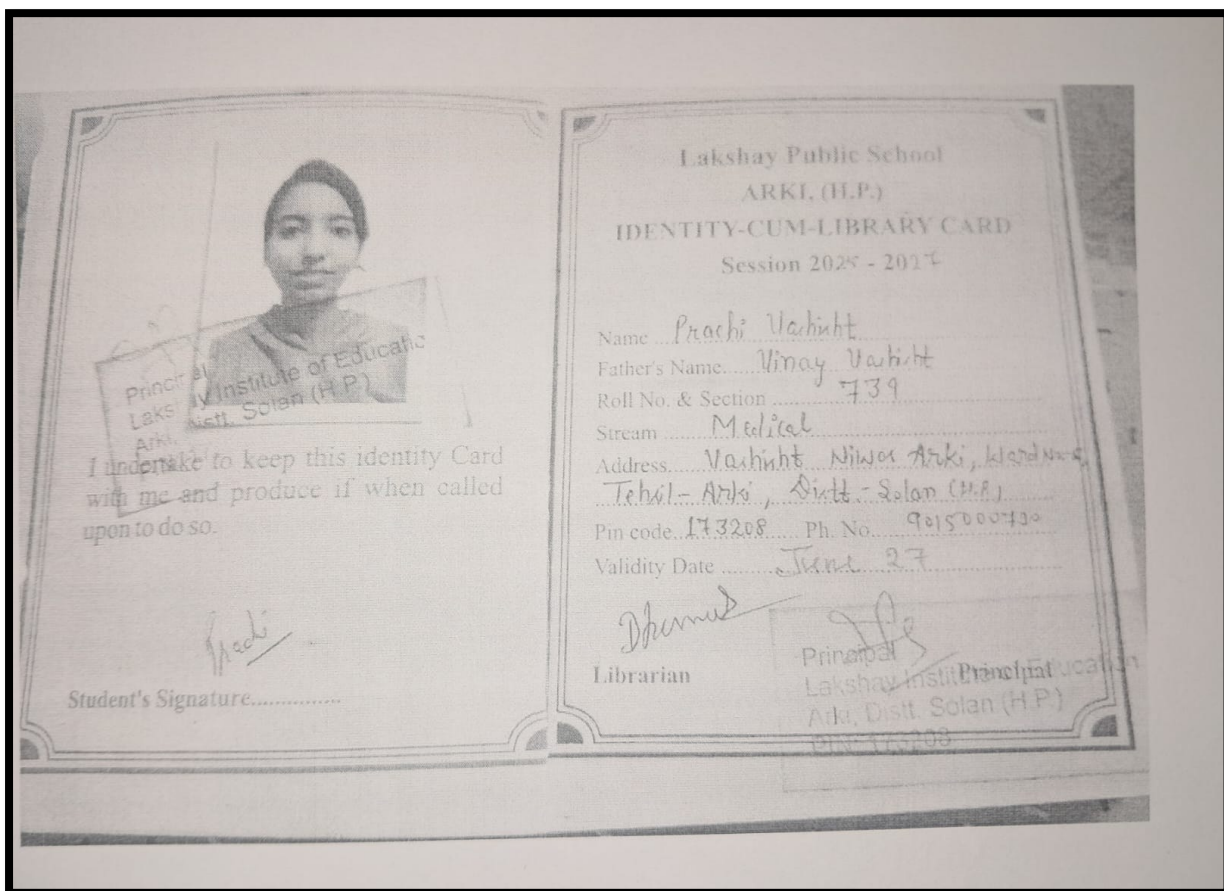 Principal
Lakshay Institute of Educatio
Arki, Distt. Solan (H.P.)
I undertake to keep this identity Card
with me and produce if when called
upon to do so.
Prachi
Student's Signature...............
Lakshay Public School
ARKI, (H.P.)
IDENTITY-CUM-LIBRARY CARD
Session 2025 - 2027
Name Prachi Vashisht
Father's Name Vinay Vashisht
Roll No. & Section 739
Stream Medical
Address Vashisht Niwas Arki, Ward No
Tehsil- Arki, Distt- Solan (H.P.)
Pin code 173208 Ph. No.
Validity Date June 27
Librarian
Principal
Principal
Lakshay Institute of Education
Arki, Distt. Solan (H.P.)
PIN-173208